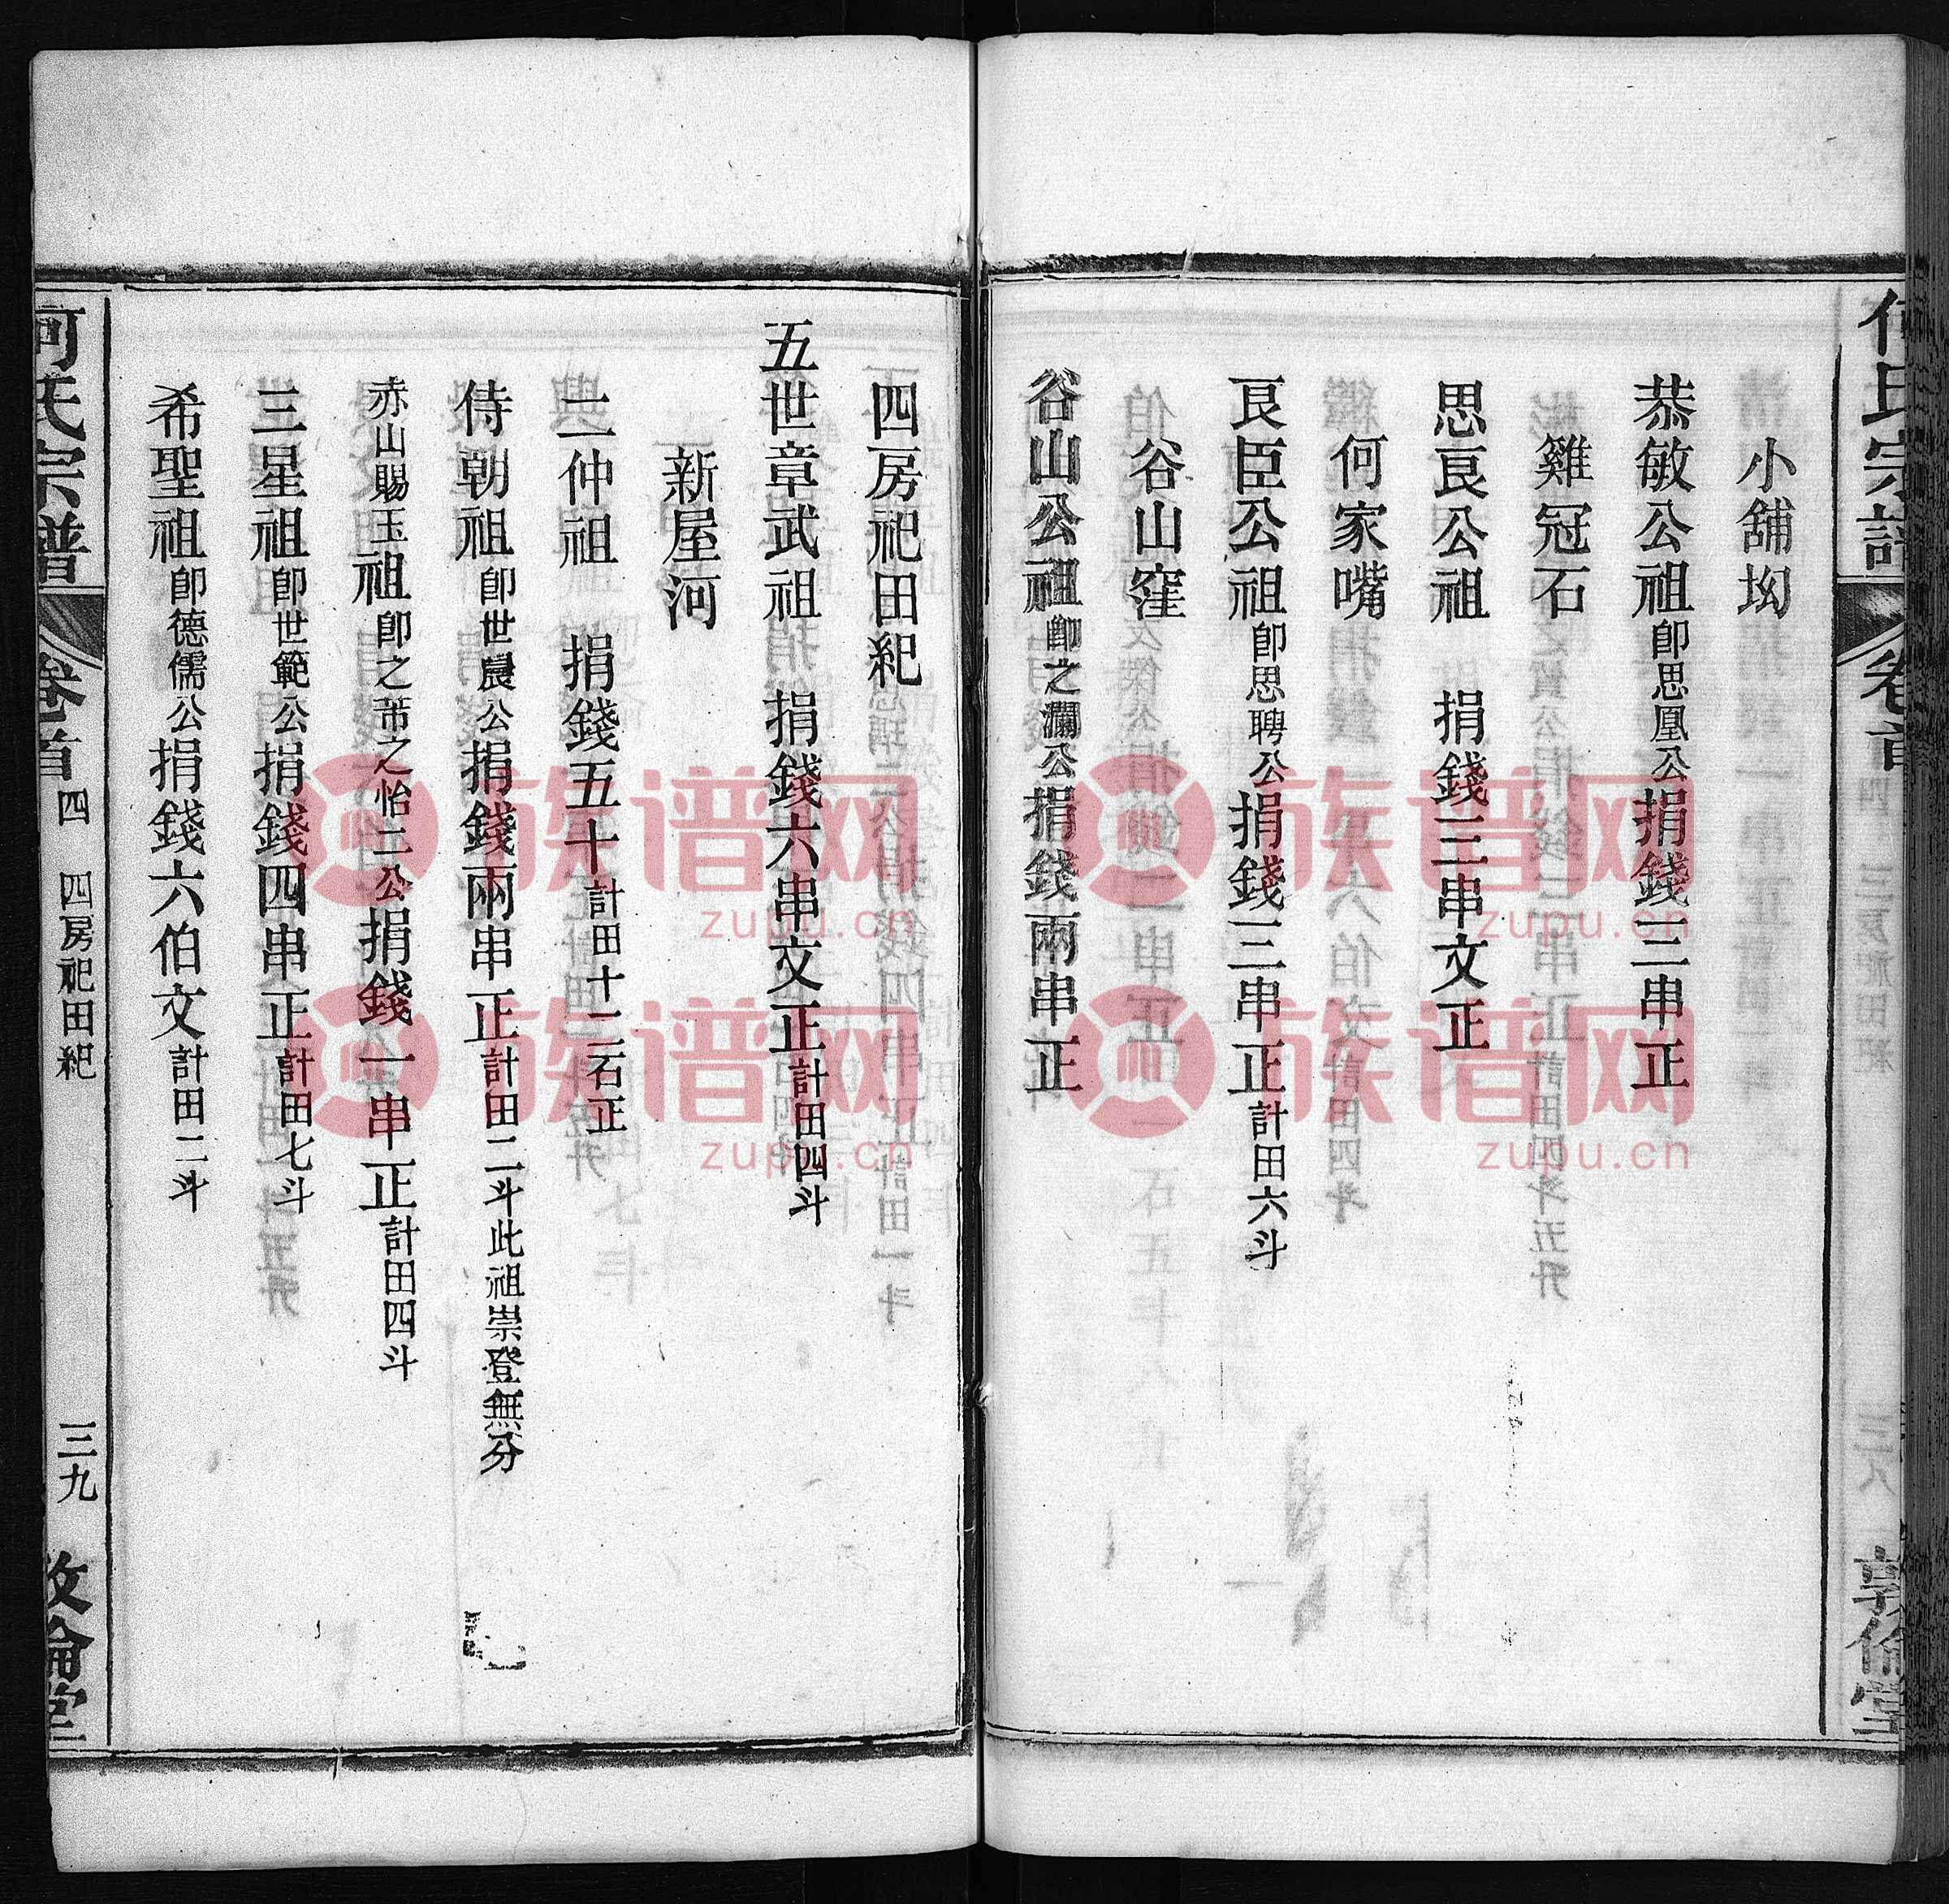 何氏宗譜 卷首 敦倫堂
小舖㘭
恭敏公祖卽思凰公捐錢三串正
雞冠石
思良公祖 捐錢三串文正
何家嘴
良臣公祖卽思聘公捐錢三串正計田六斗
谷山窪
谷山公祖卽之瀾公捐錢兩串正
四房祀田紀
五世章武祖 捐錢六串文正計田四斗
新屋河
二仲祖 捐錢五十計田十二石正
侍朝祖卽世農公捐錢兩串正計田二斗此祖崇登無分
赤山賜玉祖卽之芾之怡二公捐錢一串正計田四斗
三星祖卽世範公捐錢四串正計田七斗
希聖祖卽德儒公捐錢六伯文計田二斗
何氏宗譜 卷首 四 四房祀田紀 三九 敦倫堂
族谱网
zupu.cn
族谱网
zupu.cn
族谱网
zupu.cn
族谱网
zupu.cn